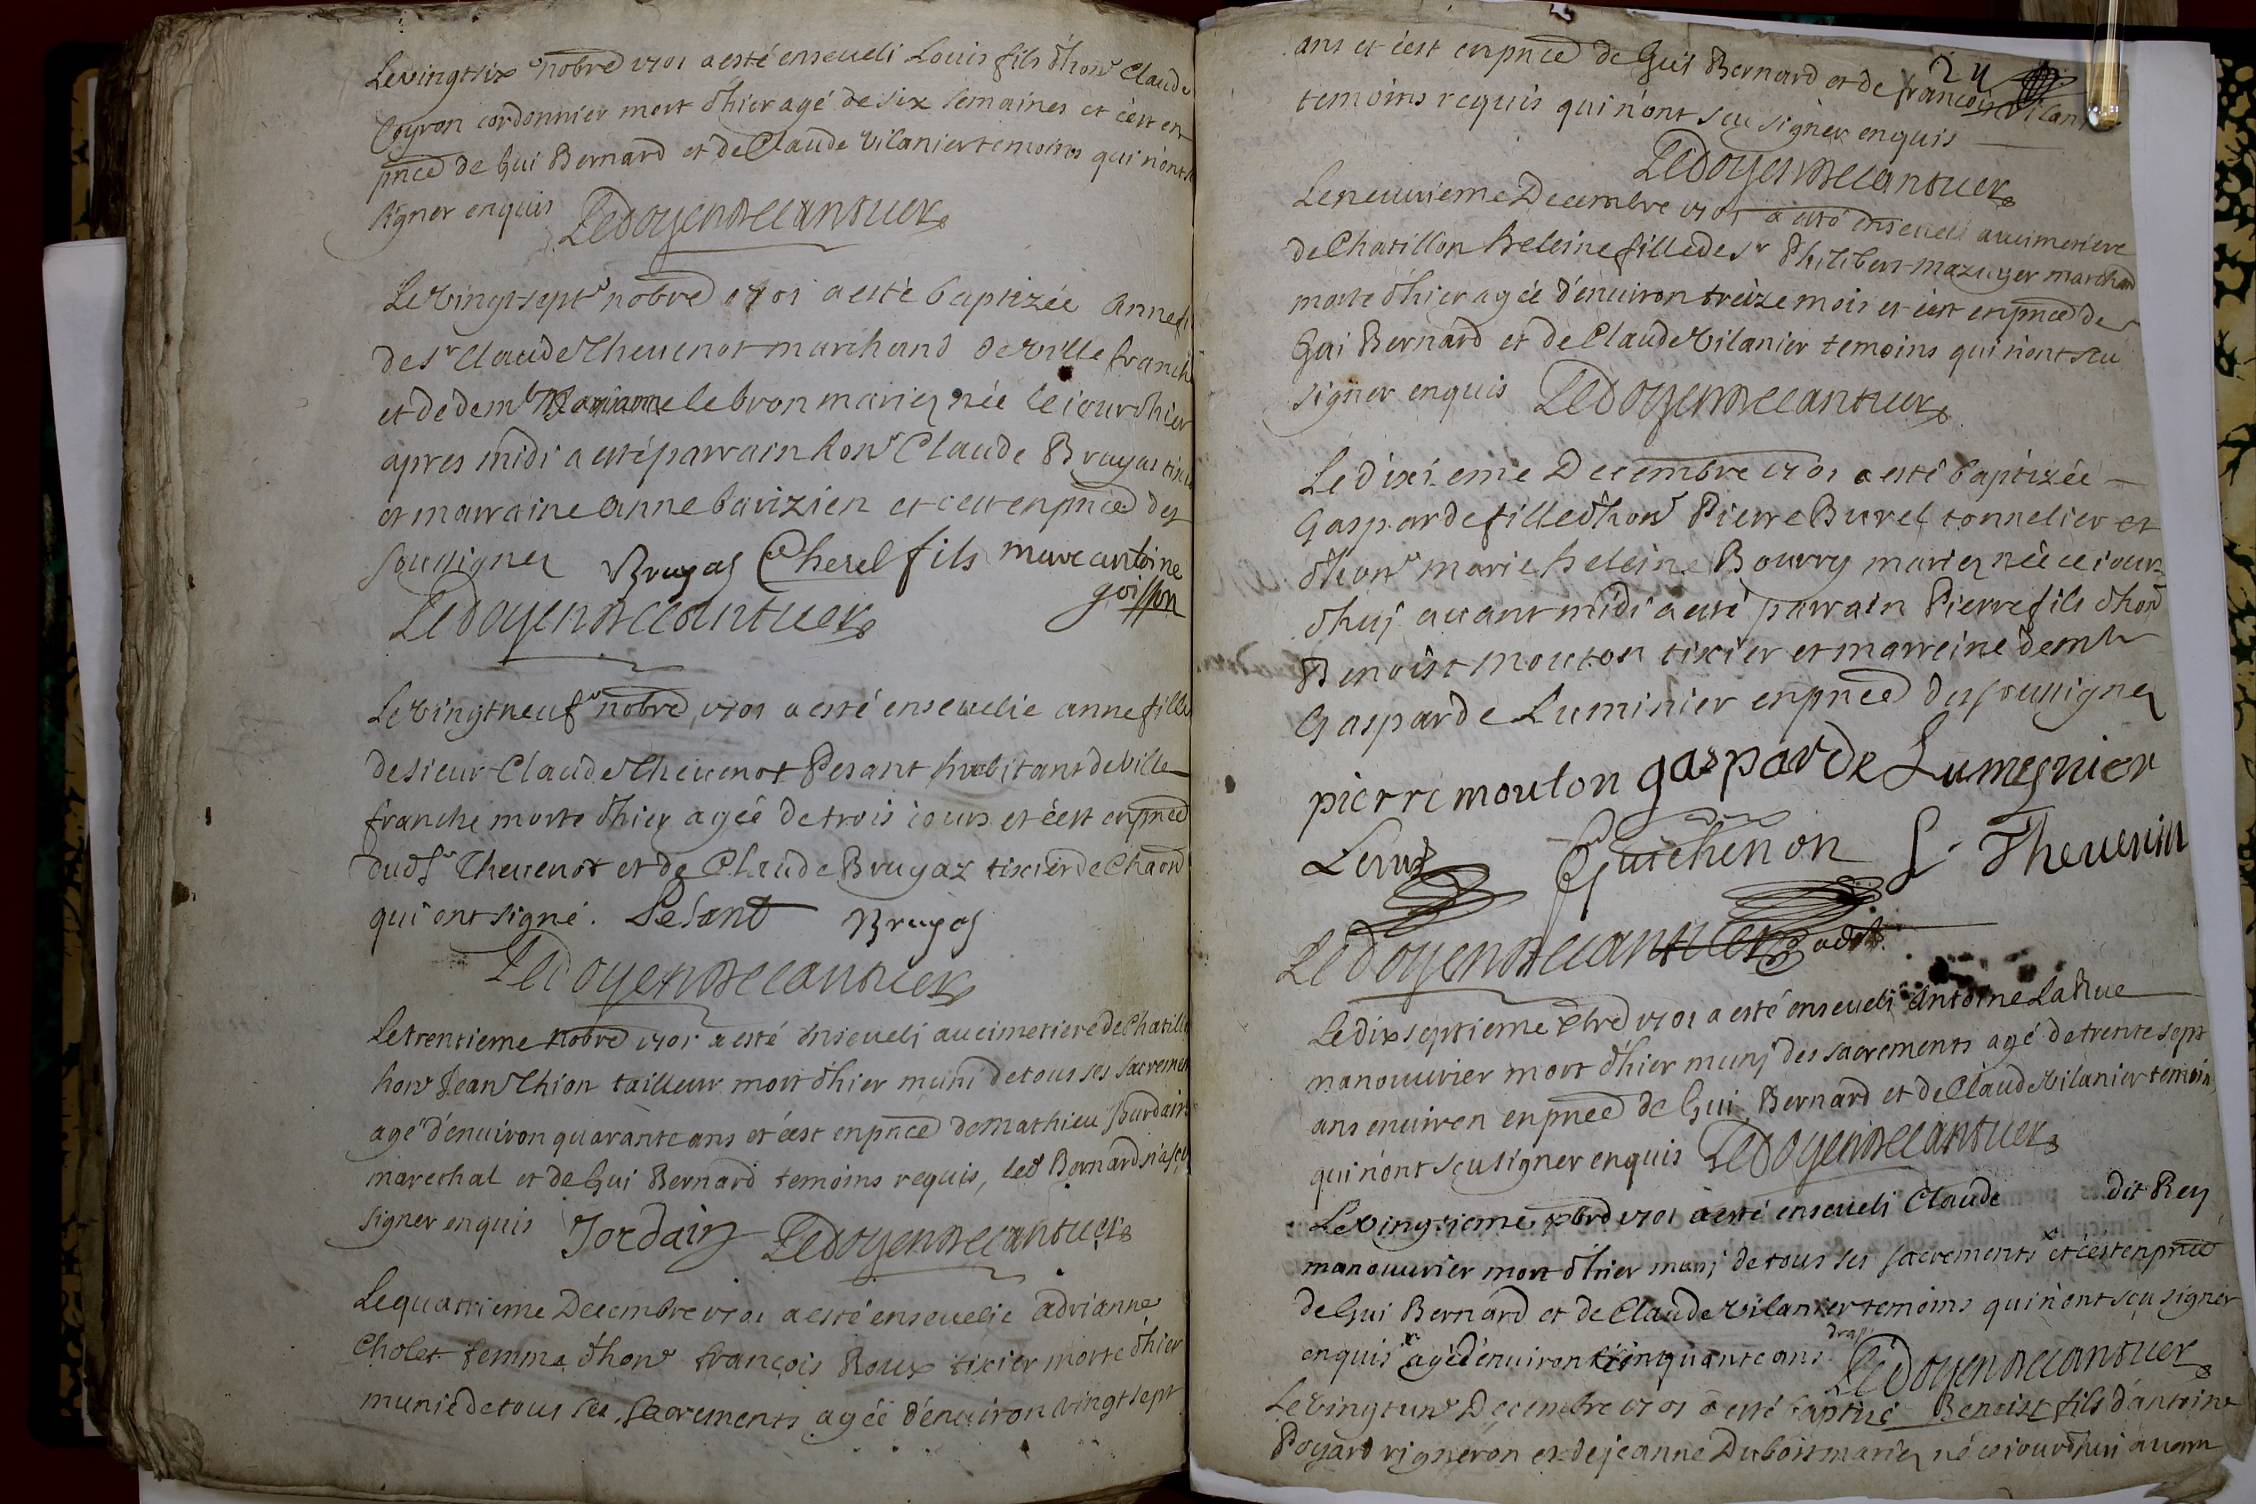 Le vingt six e nobre 1701 a esté enseueli Louis fils d'hon Claude
Coyron cordonnier mort d'hier agé de six semaines et c'est en
pnce de Gui Bernard et de Claude Vilanier temoins qui n'ont
signer enquis Le doyen de cantuer
Le vingt sept e nobre 1701 a esté baptizée Anne
de Sr Claude Theuenot marchand de Ville franche
et de dem le Marianne le bron mariez née le iour d'hier
apres midi a esté parrain hon Claude Bruyas
et marraine anne barizien et c'est en pnce des
soussignez Bruyas Cherel fils marc antoine
goisson
Le doyen de cantuer
Le vingt neuf e nobre 1701 a esté enseuelie anne fille
de sieur Claude Theuenot Pesant habitant de Ville
franche morte d'hier agée de trois iours et c'est en pnce
dud Sr Theuenot et de Claude Bruyaz tixier de Chaon
qui ont signé. Pesant Bruyas
Le doyen de cantuer
Le trentieme nobre 1701 a esté enseueli au cimetiere de Chatillo
hon Jean Thion tailleur mort d'hier muni de tous ses sacremen
agé d'enuiron quarante ans et c'est en pnce de Mathieu Jourdain
marechal et de Gui Bernard temoins requis, led Bernard n'a sçu
signer enquis Jordain Le doyen de cantuer
Le quatrieme Decembre 1701 a esté enseuelie adrianne
Cholet femme d'hon françois Roux tixier morte d'hier
munie de tous ses sacrements agée d'enuiron vingt sept
24
ans et c'est en pnce de Gui Bernard et de françois Vilan
temoins requis qui n'ont sçu signer enquis
Le doyen de cantuer
Le neuuieme Decembre 1701 a esté enseueli au cimetiere
de Chatillon heleine fille de Sr Philibert mazuyer marchand
morte d'hier agée d'enuiron treize mois et c'est en pnce de
Gui Bernard et de Claude Vilanier temoins qui n'ont sçu
signer enquis Le doyen de cantuer
Le dixieme Decembre 1701 a esté baptizée
Gasparde fille d'hon Pierre Burel tonnelier et
d'hon marie heleine Bourry mariez née ce iour
d'huj auant midi a esté parrain Pierre fils d'hon
Benoist Mouton tixier et marreine dem le
Gasparde Luminier en pnce des soussignez
pierre mouton gasparde Lumesnier
Guichenon Theuenin
Le doyen de cantuer
Le dix septieme xbre 1701 a esté enseueli Antoine La Rue
manouurier mort d'hier munj des sacrements agé de trente sept
ans enuiron en pnce de Gui Bernard et de Claude Vilanier temoin
qui n'ont sçu signer enquis Le doyen de cantuer
Le vingtieme xbre 1701 a esté enseueli Claude dit Rey
manouurier mort d'hier munj de tous ses sacrements x et c'est en pnce
de Gui Bernard et de Claude Vilanier temoins qui n'ont sçu signer
enquis x agé d'enuiron cinquante ans Le doyen de cantuer
Le vingt un e Decembre 1701 a esté baptizé Benoist fils d'antoine
Poyard vigneron et de jeanne Dubois mariez né ce iourd'hui auant